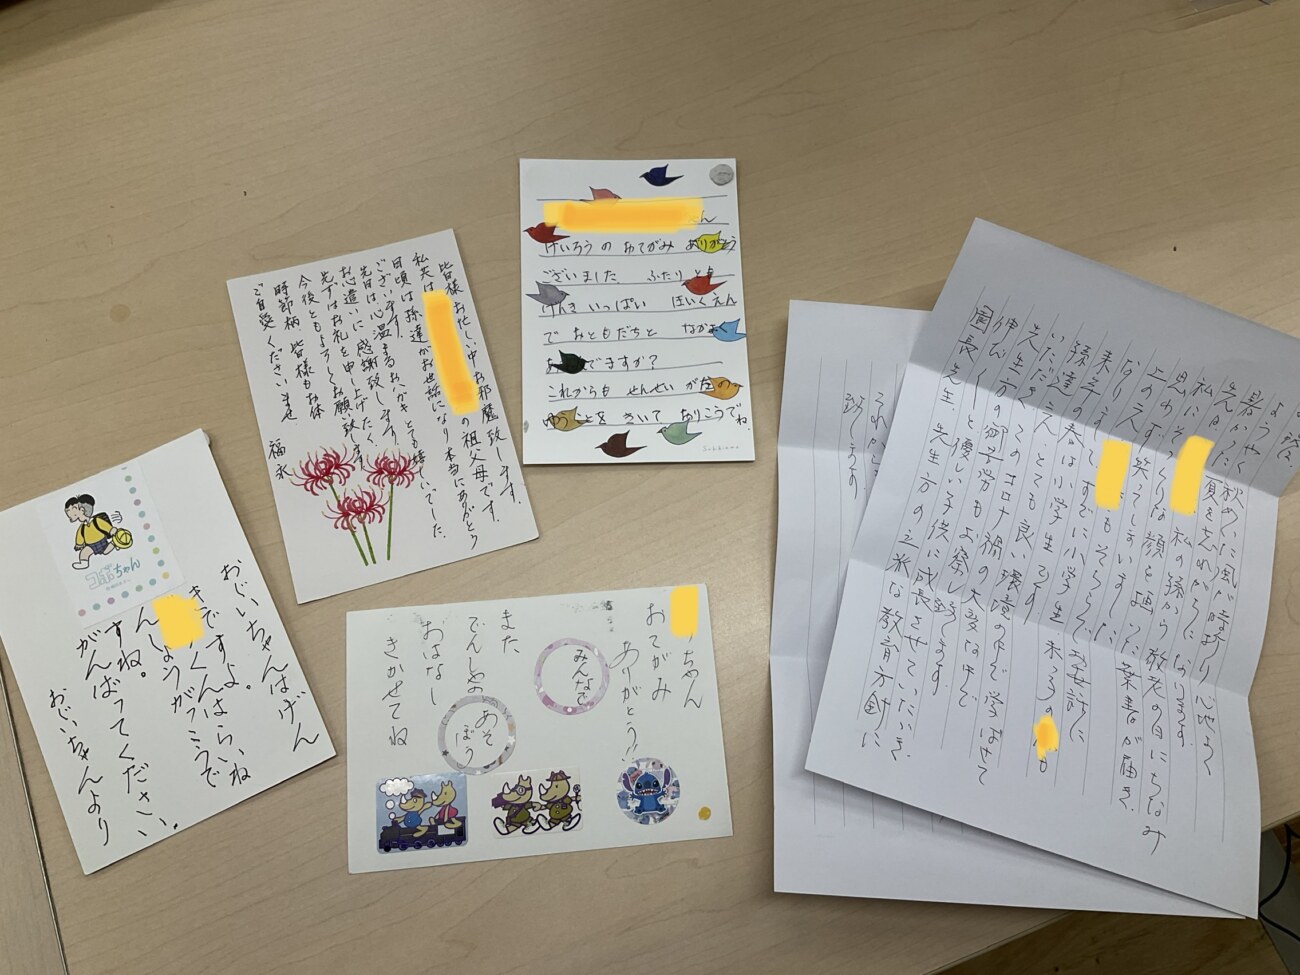 おじいちゃんはげん
きですよ。
くんはらいね
んしょうがっこうで
すね。
がんばってください。
おじいちゃんより
コボちゃん
皆様お忙しい中お邪魔致します。
私共は
の祖父母です。
日頃は孫達がお世話になり本当にありがとう
ございます。
先日は心温まるおハガキとても嬉しいでした。
お心遣いに感謝致します。
先ずはお礼を申し上げたく
今後ともよろしくお願い致します。
時節柄 皆様もお体
ご自愛くださいませ
福永
けいろうの おてがみ ありがとう
ございました ふたりとも
げんき いっぱい ほいくえん
で おともだちと なかよ
でますか?
これからも せんせい が
ことを きいて ありこうでね
ちゃん
おてがみ
ありがとう!!
みんなで
また
でんしゃの
あそぼう
おはなし
きかせてね
ようやく秋めいた風が時折り心地よく
暑かった夏を忘れがちになります。
私の孫から敬老の日にちなみ
思わずそっくりな顔を描いた葉書が届き、
笑ってしまいました
もそろそろ
来年の春は小学生です
孫達の
先生方の御苦労もお察し致します。
このコロナ禍の大変な中で
とても良い環境の中で学ばせて
いただき
伸び伸びと優しい子供に成長させていただき
園長先生、先生方の立派な教育方針に